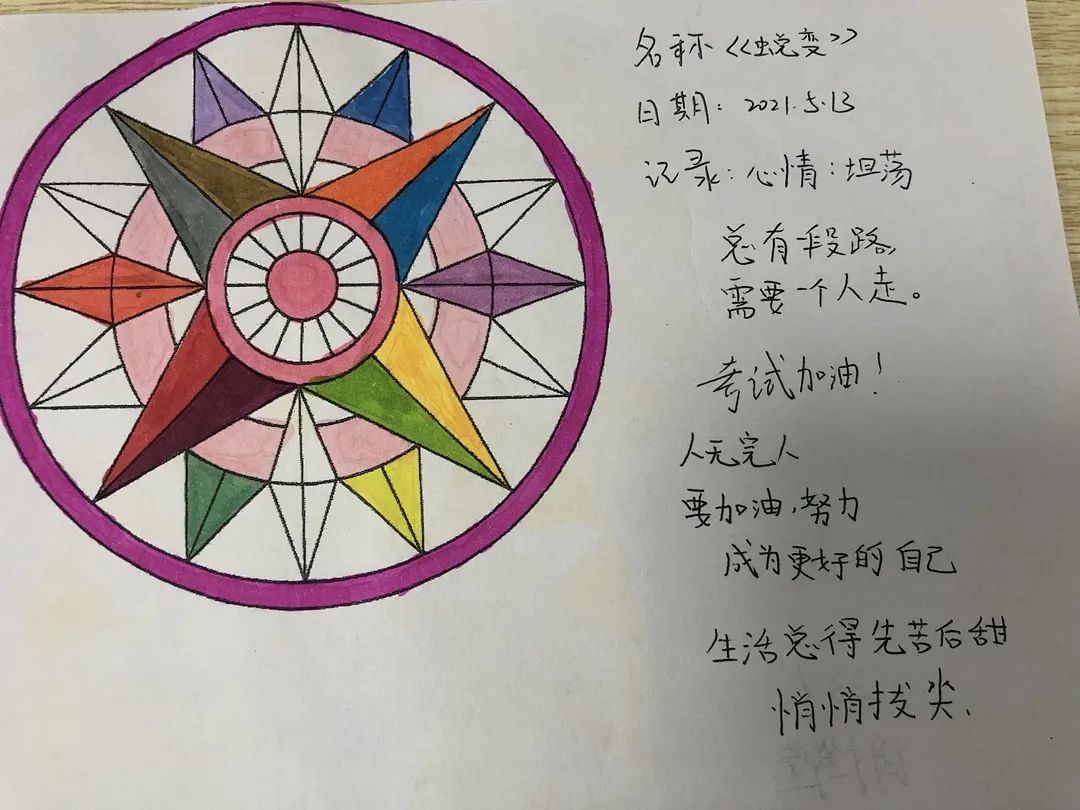 名称《蜕变》
日期：2021.5.13
记录：心情：坦荡
总有一段路，
需要一个人走。
考试加油！
人无完人
要加油，努力
成为更好的自己
生活总得先苦后甜
悄悄拔尖、